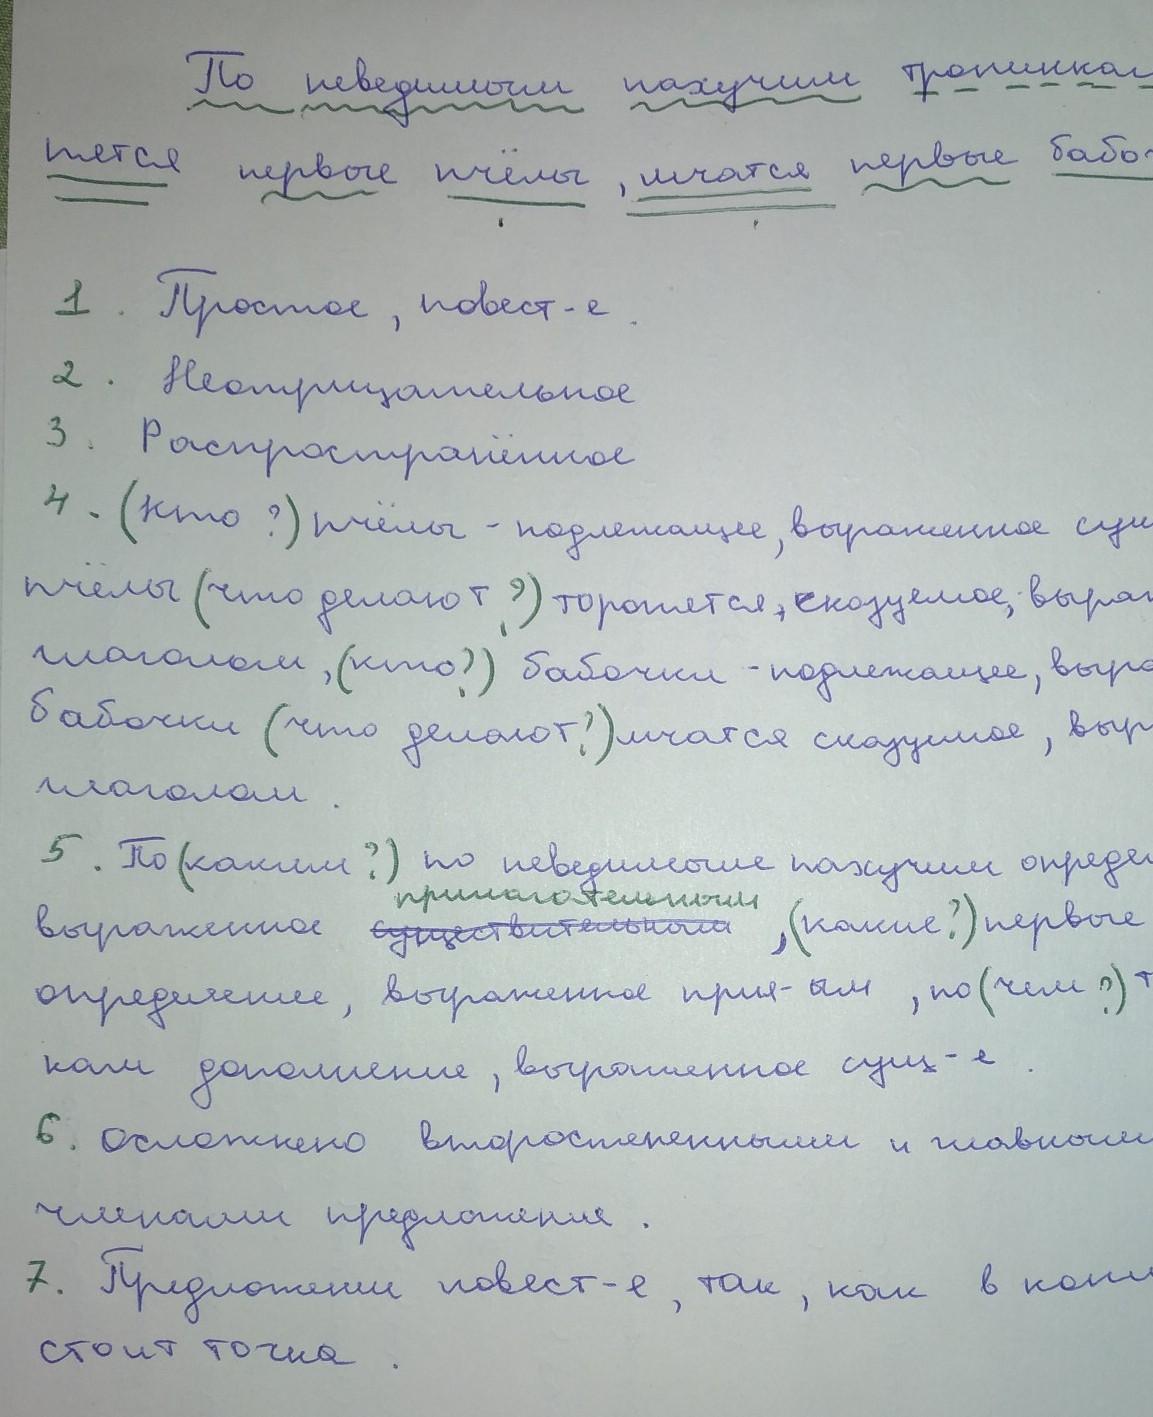 По неведимым пахучим тропинкам
пятся первые пчёлы, мчатся первые бабо
1. Простое, повест-е.
2. Неотрицательное
3. Распространённое
4. (Кто?) пчёлы - подлежащее, выраженное сущ
пчёлы (что делают?) торопятся, сказуемое, выраж
глаголом, (кто?) бабочки - подлежащее, выра
бабочки (что делают?) мчатся сказуемое, выр
глаголом.
5. По (каким?) по неведимыме пахучим опреде
выраженное существительным прилагательным, (какие?) первые
определение, выраженное прил-ым, по (чем?) т
кам дополнение, выраженное сущ-е.
6. Осложнено второстепенными и главными
членами предложение.
7. Предложение повест-е, так, как в конц
стоит точка.